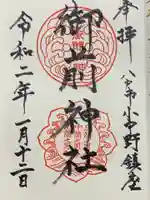 奉拝
八戸市小中野鎮座
御前神社
令和二年一月十二日